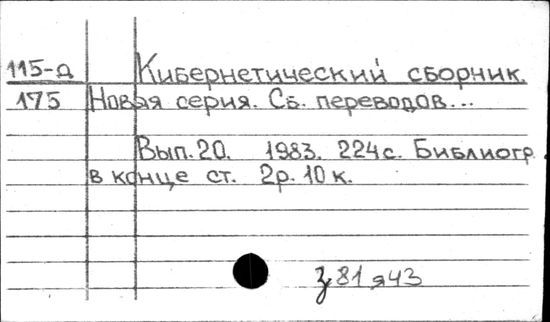 115-д Кибернетический сборник.
175 Новая серия. Сб. переводов...
Вып. 20. 1983. 224с. Библиогр.
в конце ст. 2р. 10к.
З 81 я43